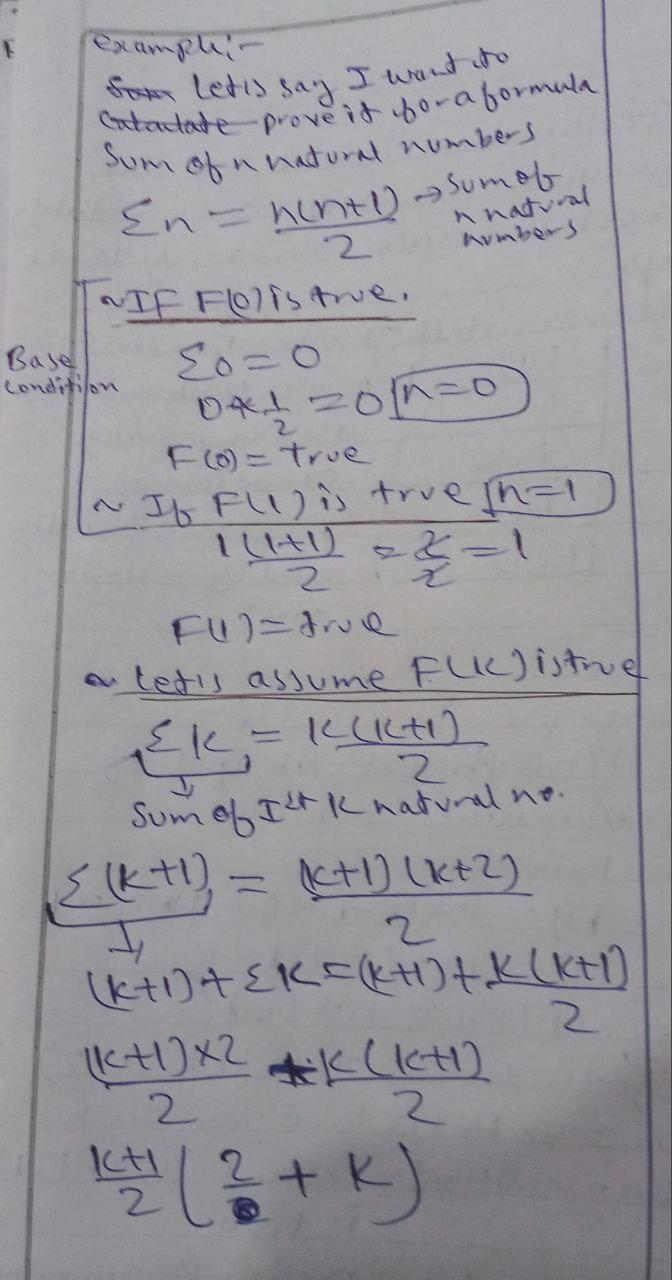 example:-
Let's say I want to
Calculate prove it for a formula
Sum of n natural numbers
Σn = n(n+1)/2 → sum of n natural numbers
~ IF F(0) is true.
Base condition
Σ0 = 0
0*1/2 = 0 n=0
F(0) = true
~ If F(1) is true n=1
1(1+1)/2 = 2/2 = 1
F(1) = true
~ Let's assume F(K) is true
ΣK = K(K+1)/2
↓
Sum of 1st K natural no.
Σ(K+1) = (K+1)(K+2)/2
↓
(K+1) + ΣK = (K+1) + K(K+1)/2
(K+1)×2/2 + K(K+1)/2
K+1/2 (2 + K)